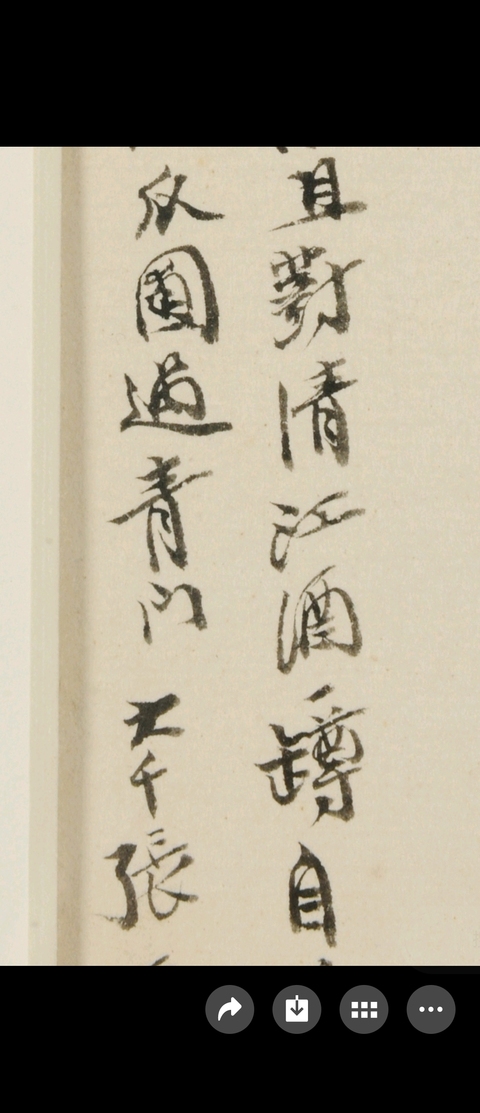 且對清江酒罇自
瓜園過青門 大千張